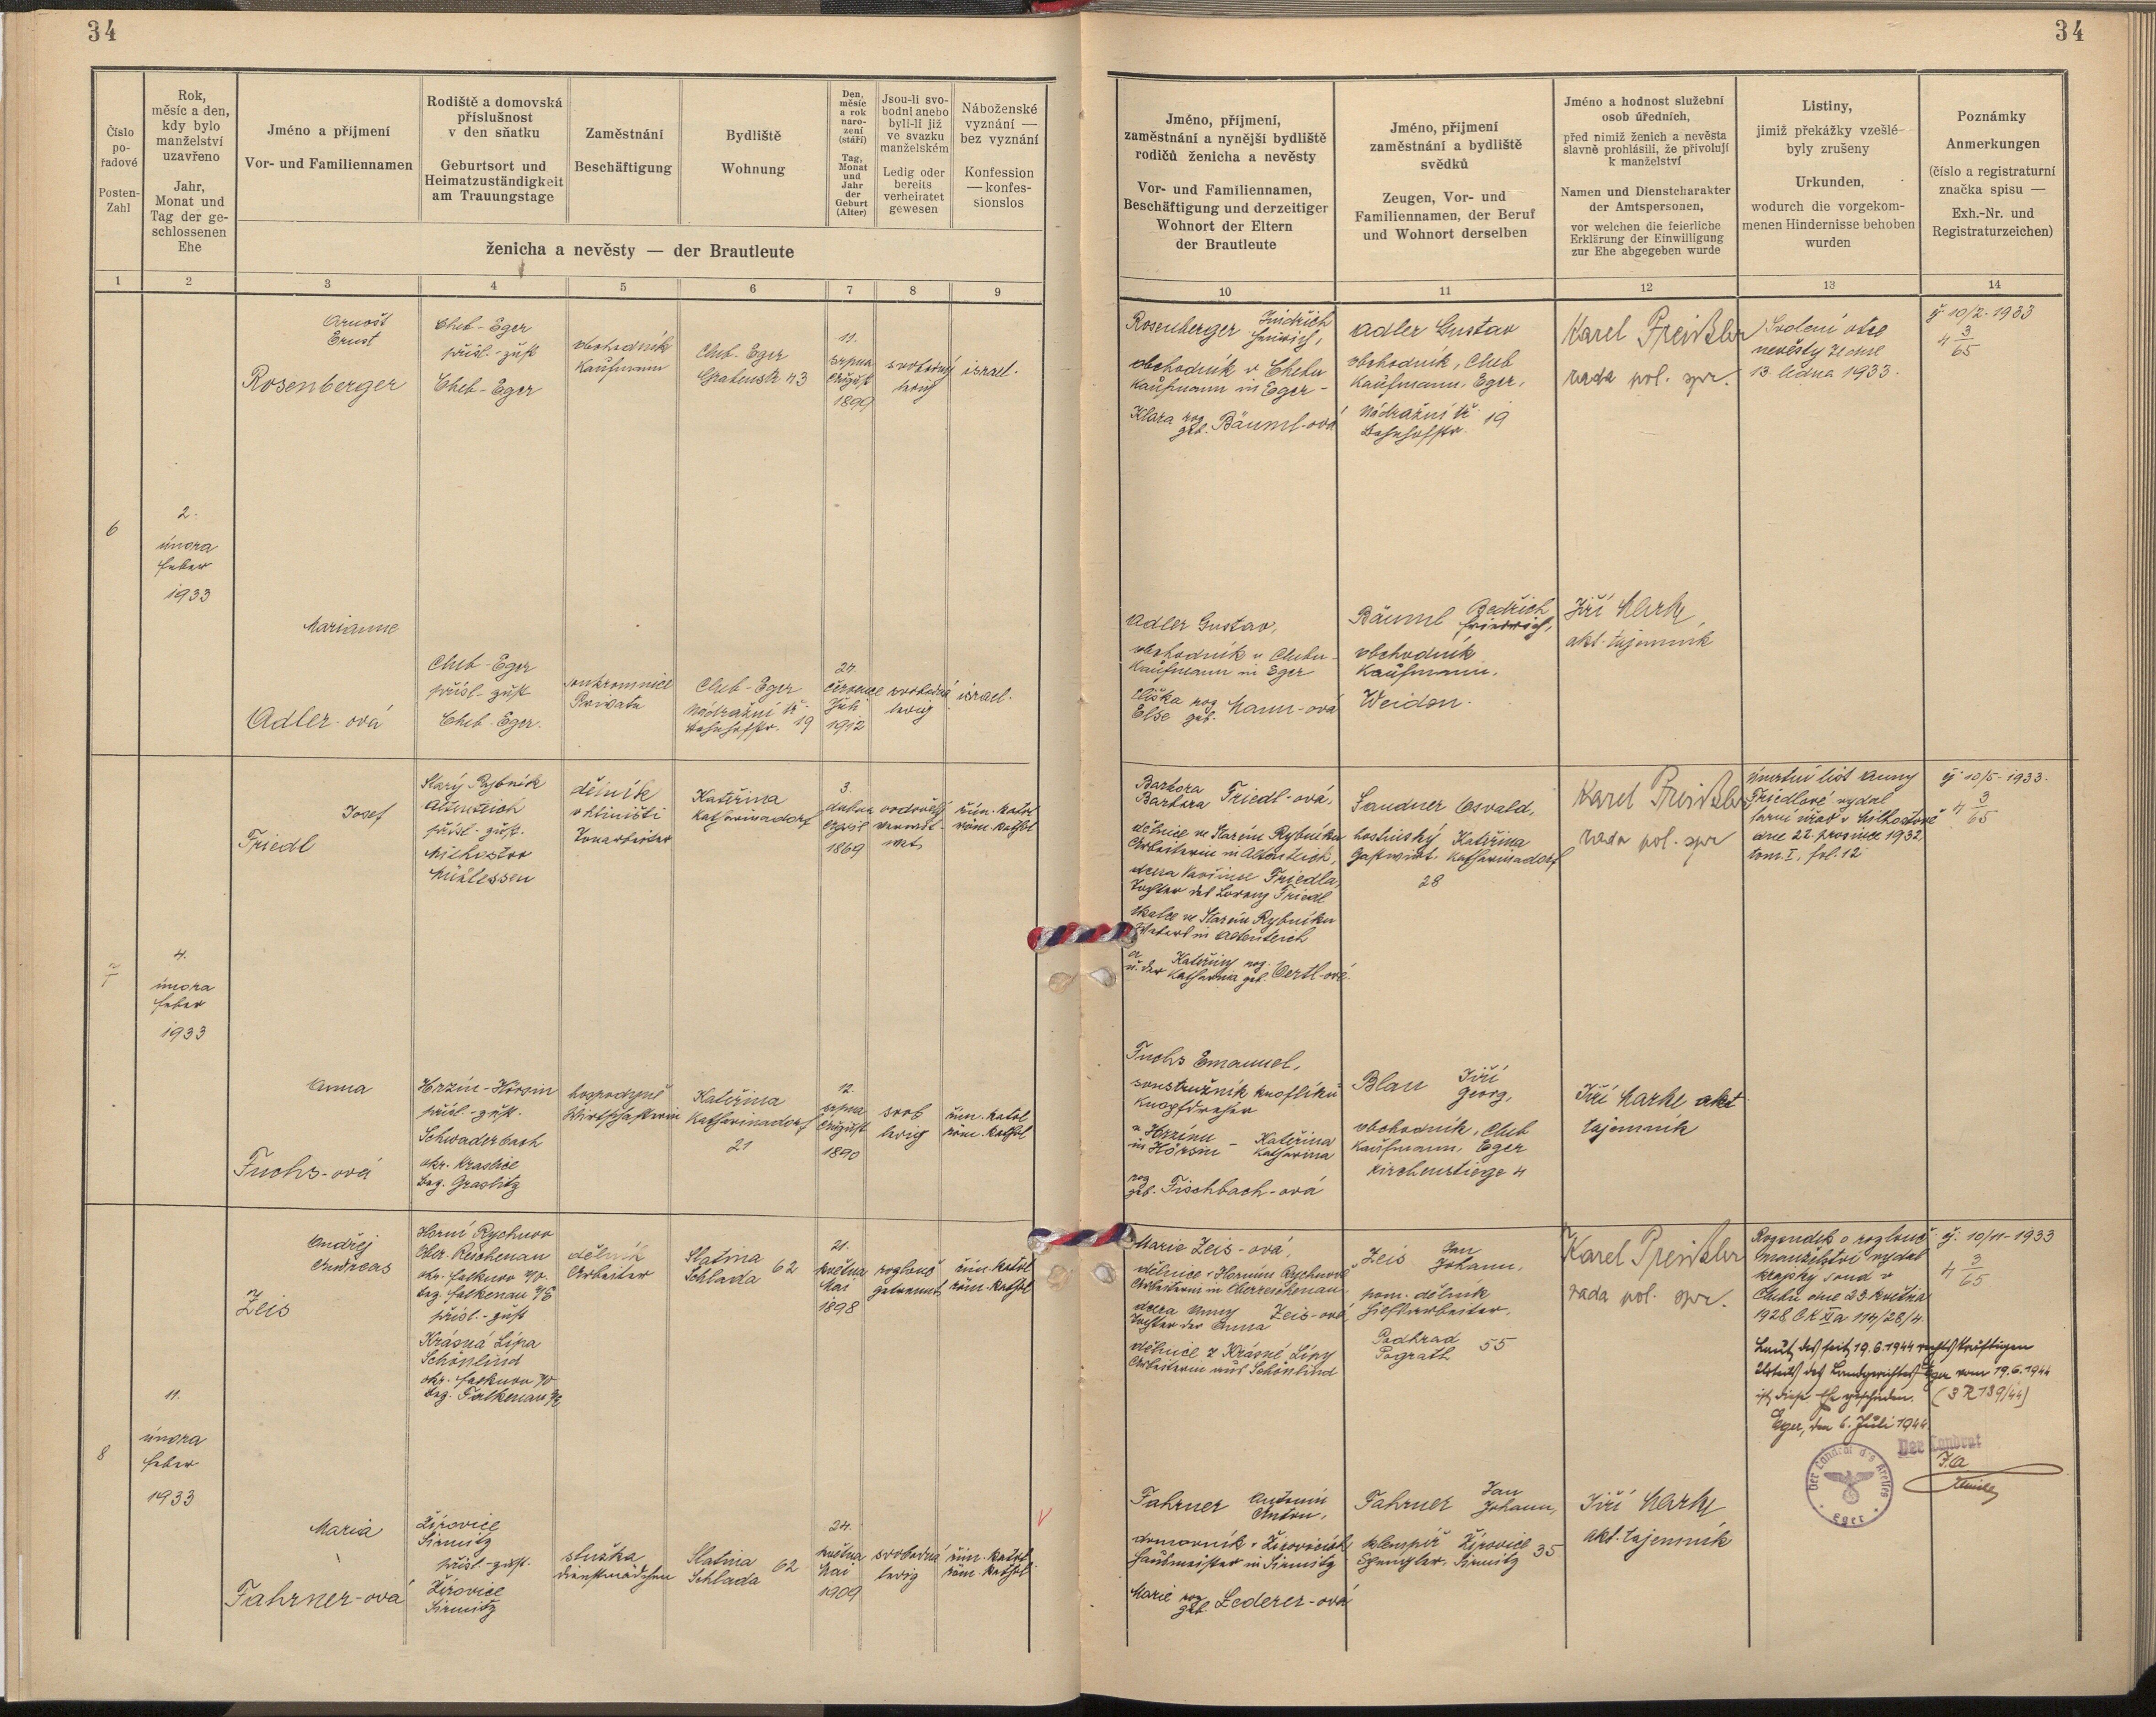 34
34
Číslo po-řadové
Posten-Zahl
Rok,
měsíc a den,
kdy bylo
manželství
uzavřeno
Jahr,
Monat und
Tag der ge-
schlossenen
Ehe
Jméno a přijmení
Vor- und Familiennamen
Rodiště a domovská
příslušnost
v den sňatku
Geburtsort und
Heimatzuständigkeit
am Trauungstage
Zaměstnání
Beschäftigung
Bydliště
Wohnung
Den,
měsíc
a rok
naro-
zení
(stáří)
Tag,
Monat
und
Jahr
der
Geburt
(Alter)
Jsou-li svo-
bodni anebo
byli-li již
ve svazku
manželském
Ledig oder
bereits
verheiratet
gewesen
Náboženské
vyznání —
bez vyznání
Konfession
— konfes-
sionslos
ženicha a nevěsty — der Brautleute
Jméno, příjmení,
zaměstnání a nynější bydliště
rodičů ženicha a nevěsty
Vor- und Familiennamen,
Beschäftigung und derzeitiger
Wohnort der Eltern
der Brautleute
Jméno, přijmení
zaměstnání a bydliště
svědků
Zeugen, Vor- und
Familiennamen, der Beruf
und Wohnort derselben
Jméno a hodnost služební
osob úředních,
před nimiž ženich a nevěsta
slavně prohlásili, že přivolují
k manželství
Namen und Dienstcharakter
der Amtspersonen,
vor welchen die feierliche
Erklärung der Einwilligung
zur Ehe abgegeben wurde
Listiny,
jimiž překážky vzešlé
byly zrušeny
Urkunden,
wodurch die vorgekom-
menen Hindernisse behoben
wurden
Poznámky
Anmerkungen
(číslo a registraturní
značka spisu —
Exh.-Nr. und
Registraturzeichen)
1 2 3 4 5 6 7 8 9 10 11 12 13 14
6
2.
února
feber
1933
Arnošt
Ernst
Rosenberger
Cheb-Eger
přísl.-zust
Cheb-Eger
obchodník
Kaufmann
Cheb-Eger
Grabenstr 43
11.
srpna
August
1899
svobodný
ledig
israel.
Rosenberger Jindřich
Heinrich,
obchodník v Chebu
Kaufmann in Eger-
Klara roz
geb. Bäuml-ová
Adler Gustav
obchodník, Cheb
Kaufmann, Eger,
Nádražní tř.
Bahnhofstr. 19
Karel Preißler
rada pol. spr.
Svolení otce
nevěsty ze dne
13. ledna 1933.
č 10/2-1933
4 3/65
Marianne
Adler-ová
Cheb-Eger
přísl-zust
Cheb-Eger.
soukromnice
Private
Cheb-Eger
Nádražní tř.
Bahnhofstr. 19
24.
července
Juli
1912
svobodná
ledig
israel.
Adler Gustav,
obchodník v Chebu-
Kaufmann in Eger
Eliška roz
Else geb. Mann-ová
Bäuml Bedřich
Friedrich,
obchodník
Kaufmann.
Weiden.
Jiří Markl
akt. tajemník
7
4.
února
feber
1933
Josef
Friedl
Starý Rybník
Altenteich
přísl-zust.
Milhostov
Mühlessen
dělník
v hliništi
Tonarbeiter
Kateřina
Katharinadorf
3.
dubna
April
1869
ovdovělý
verwit-
wet
řím.-katol
röm.-kathol
Barbora
Barbara Friedl-ová,
dělnice ve Starém Rybníku
Arbeiterin in Altenteich,
dcera Lorenze Friedla,
Tochter des Lorenz Friedl
tkalce ve Starém Rybníku
Webers in Altenteich
a Kateřiny roz.
u. der Katharina geb. Oertl-ová.
Sandner Osvald,
hostinský Kateřina
Gastwirt Katharinadorf
28
Karel Preißler
rada pol. spr
úmrtní list Anny
Friedlové vydal
farní úřad v Milhostově
dne 22. prosince 1932,
tom. I, fol. 12
č: 10/5-1933.
4 3/65
Anna
Fuchs-ová
Hrzín-Hörsin
přísl-zust.
Schwaderbach
okr. Kraslice
Bez. Graslitz
hospodyně
Wirtschafterin
Kateřina
Katharinadorf
21
12.
srpna
August
1890
svob
ledig
řím.-katol
röm.-kathol
Fuchs Emanuel,
soustružník knoflíků
Knopfdreher
v Hrzínu - Kateřina
in Hörsin Katharina
roz
geb. Fischbach-ová
Blau Jiří
Georg,
obchodník, Cheb
Kaufmann, Eger
Kirchenstiege 4
Jiří Markl akt
tajemník
8
11.
února
feber
1933
Ondřej
Andreas
Zeis
Horní Rychnov
Ober-Reichenau
okr. Falknov n/O.
Bez. Falkenau a/E
přísl-zust
Krásná Lípa
Schönlind
okr. Falknov n/O
Bez. Falkenau a/E
dělník
Arbeiter
Slatina
Schlada 62
21.
května
Mai
1898
rozlouč
getrennt
řím-katol
röm-kathol
Marie Zeis-ová,
dělnice v Horním Rychnově
Arbeiterin in Oberreichenau
dcera Anny
Tochter der Anna Zeis-ová,
dělnice z Krásné Lípy
Arbeiterin aus Schönlind
Zeis Jan
Johann,
pom. dělník
Hilfsarbeiter,
Podhrad
Pograth 55
Karel Preißler
rada pol. spr.
Rozsudek o rozlouč
manželství vydal
krajský soud v
Chebu dne 23. května
1928 Ck IIa 114/28/4.
č. 10/11-1933
4 3/65
Laut des seit 19.6.1944 rechtskräftigen
Urteils des Landgerichtes Eger vom 19.6.1944
ist diese Ehe geschieden. (3 R 139/44)
Eger, den 6. Juli 1944.
Der Landrat
J.A.
Der Landrat d's Kreises
Eger
Maria
Fahrner-ová
Žírovice
Sirmitz
přísl-zust.
Žírovice
Sirmitz
služka
Dienstmädchen
Slatina
Schlada 62
24.
května
Mai
1909
svobodná
ledig
řím.-katol
röm-kathol
Fahrner Antonín
Anton,
domovník v Žírovicích
Hausmeister in Sirmitz
Marie roz
geb. Lederer-ová
Fahrner Jan
Johann,
klempíř Žírovice
Spengler, Sirmitz 35
Jiří Markl
akt. tajemník